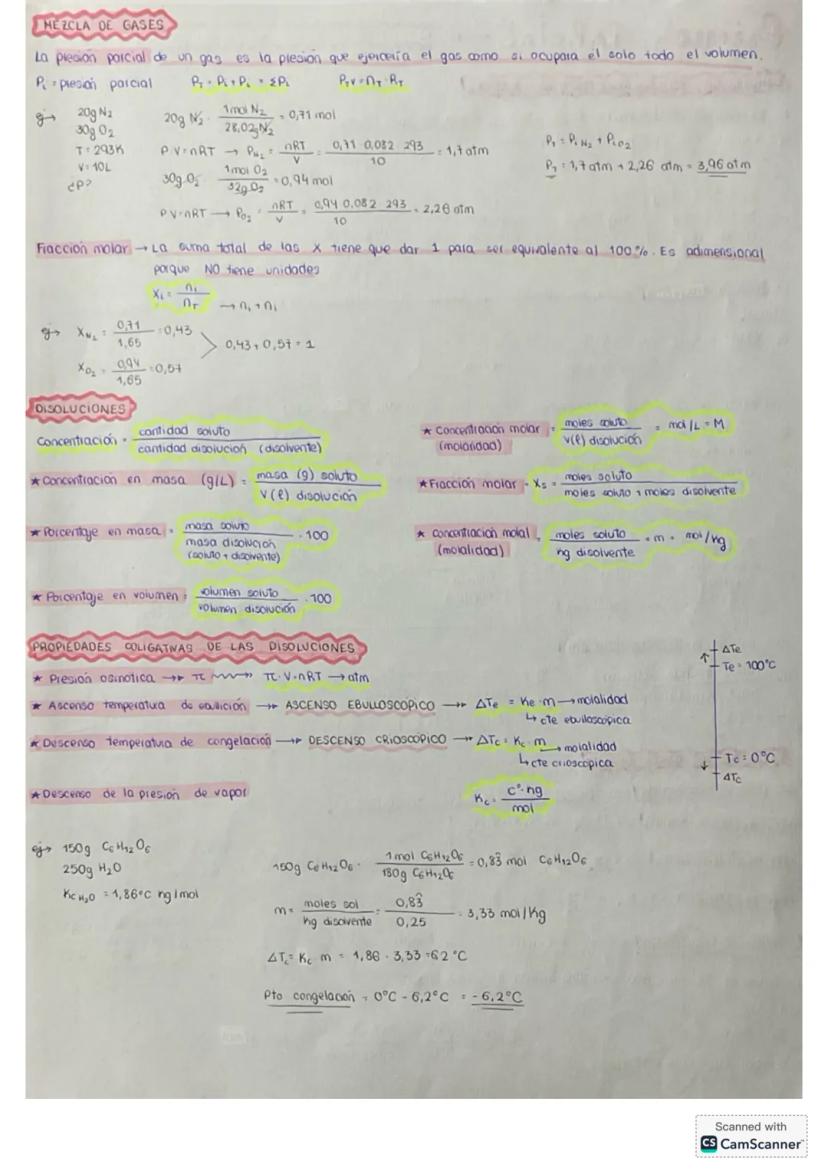 MEZCLA DE GASES
La presión parcial de un gas es la presión que ejercería el gas como si ocupara él solo todo el volumen.
Pi = presión parcial   PT = Pi + Pi = ΣPi   PT·V = nT · RT
ej→ 20g N2
30g O2
T = 293K
V = 10L
¿P?
20g N2 · 1mol N2 / 28,02g N2 = 0,71 mol
P·V = nRT → PN2 = nRT / V = 0,71 · 0,082 · 293 / 10 = 1,7 atm
30g O2 · 1mol O2 / 32g O2 = 0,94 mol
P·V = nRT → PO2 = nRT / V = 0,94 · 0,082 · 293 / 10 = 2,26 atm
PT = Pi N2 + Pi O2
PT = 1,7 atm + 2,26 atm = 3,96 atm
Fracción molar → La suma total de las X tiene que dar 1 para ser equivalente al 100%. Es adimensional
porque NO tiene unidades
Xi = ni / nT → ni + ni
ej→ XN2 = 0,71 / 1,65 = 0,43
XO2 = 0,94 / 1,65 = 0,57
0,43 + 0,57 = 1
DISOLUCIONES
Concentración = cantidad soluto / cantidad disolución (disolvente)
★ Concentración en masa (g/L) = masa (g) soluto / V(l) disolución
★ Porcentaje en masa = masa soluto / masa disolución (soluto + disolvente) · 100
★ Porcentaje en volumen = volumen soluto / volumen disolución · 100
★ Concentración molar (molaridad) = moles soluto / V(l) disolución = mol/L = M
★ Fracción molar - Xs = moles soluto / moles soluto + moles disolvente
★ Concentración molal (molalidad) = moles soluto / kg disolvente = m = mol/kg
PROPIEDADES COLIGATIVAS DE LAS DISOLUCIONES
★ Presión osmótica →→ π → π · V = nRT → atm
★ Ascenso temperatura de ebullición →→ ASCENSO EBULLOSCÓPICO →→ ΔTe = Ke · m → molalidad
↳ cte ebulloscópica
★ Descenso temperatura de congelación →→ DESCENSO CRIOSCÓPICO →→ ΔTc = Kc · m → molalidad
↳ cte crioscópica
★ Descenso de la presión de vapor
Kc = Cº · kg / mol
ΔTe
Te = 100°C
Tc = 0°C
ΔTc
ej→ 150g C6H12O6
250g H2O
Kc H2O = 1,86°C kg/mol
150g C6H12O6 · 1 mol C6H12O6 / 180g C6H12O6 = 0,83 mol C6H12O6
m = moles sol / kg disolvente = 0,83 / 0,25 = 3,33 mol/Kg
ΔTc = Kc · m = 1,86 · 3,33 = 6,2 °C
Pto congelación = 0°C - 6,2°C = -6,2°C
Scanned with
CS CamScanner